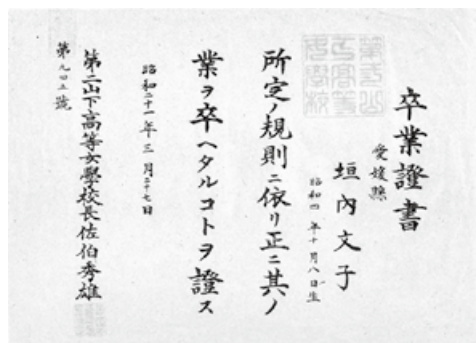 卒業證書
愛媛縣
垣内文子
昭和四年十月八日生
所定ノ規則ニ依リ正ニ其ノ
業ヲ卒ヘタルコトヲ證ス
昭和二十一年三月二十七日
第二山下高等女學校長佐伯秀雄
第九四五號